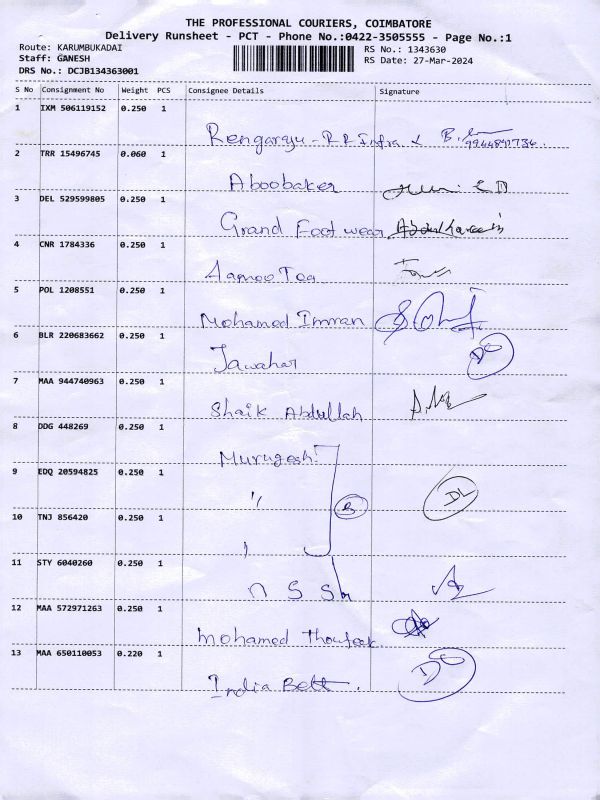 THE PROFESSIONAL COURIERS, COIMBATORE
Delivery Runsheet - PCT - Phone No.:0422-3505555 - Page No.:1
Route: KARUMBUKADAI RS No.: 1343630
Staff: GANESH RS Date: 27-Mar-2024
DRS No.: DCJB134363001
S No Consignment No Weight PCS Consignee Details Signature
1 IXM 506119152 0.250 1
Rengaraju - RR Infra
2 TRR 15496745 0.060 1
Aboobaker
3 DEL 529599805 0.250 1
Grand Foot wear
4 CNR 1784336 0.250 1
5 POL 1208551 0.250 1
Mohamed Imran
6 BLR 220683662 0.250 1
Jawahar
7 MAA 944740963 0.250 1
Shaik Abdullah
8 DDG 448269 0.250 1
Murugesh
9 EDQ 20594825 0.250 1
" B DL
10 TNJ 856420 0.250 1
11 STY 6040260 0.250 1
12 MAA 572971263 0.250 1
Mohamed Thoufeek
13 MAA 650110053 0.220 1
India Belt